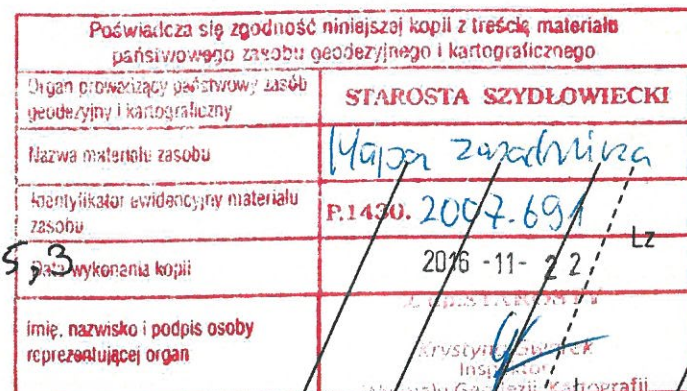 Poświadcza się zgodność niniejszej kopii z treścią materiału
państwowego zasobu geodezyjnego i kartograficznego
Organ prowadzący państwowy zasób
geodezyjny i kartograficzny
STAROSTA SZYDŁOWIECKI
Nazwa materiału zasobu
Mapa zasadnicza
Identyfikator ewidencyjny materiału
zasobu
P.1430. 2007.691
Lz
5,3
Data wykonania kopii
2016 -11- 22
Z up. STAROSTY
imię, nazwisko i podpis osoby
reprezentującej organ
Krystyna
Inspektor
Wydziału Geodezji, Kartografii